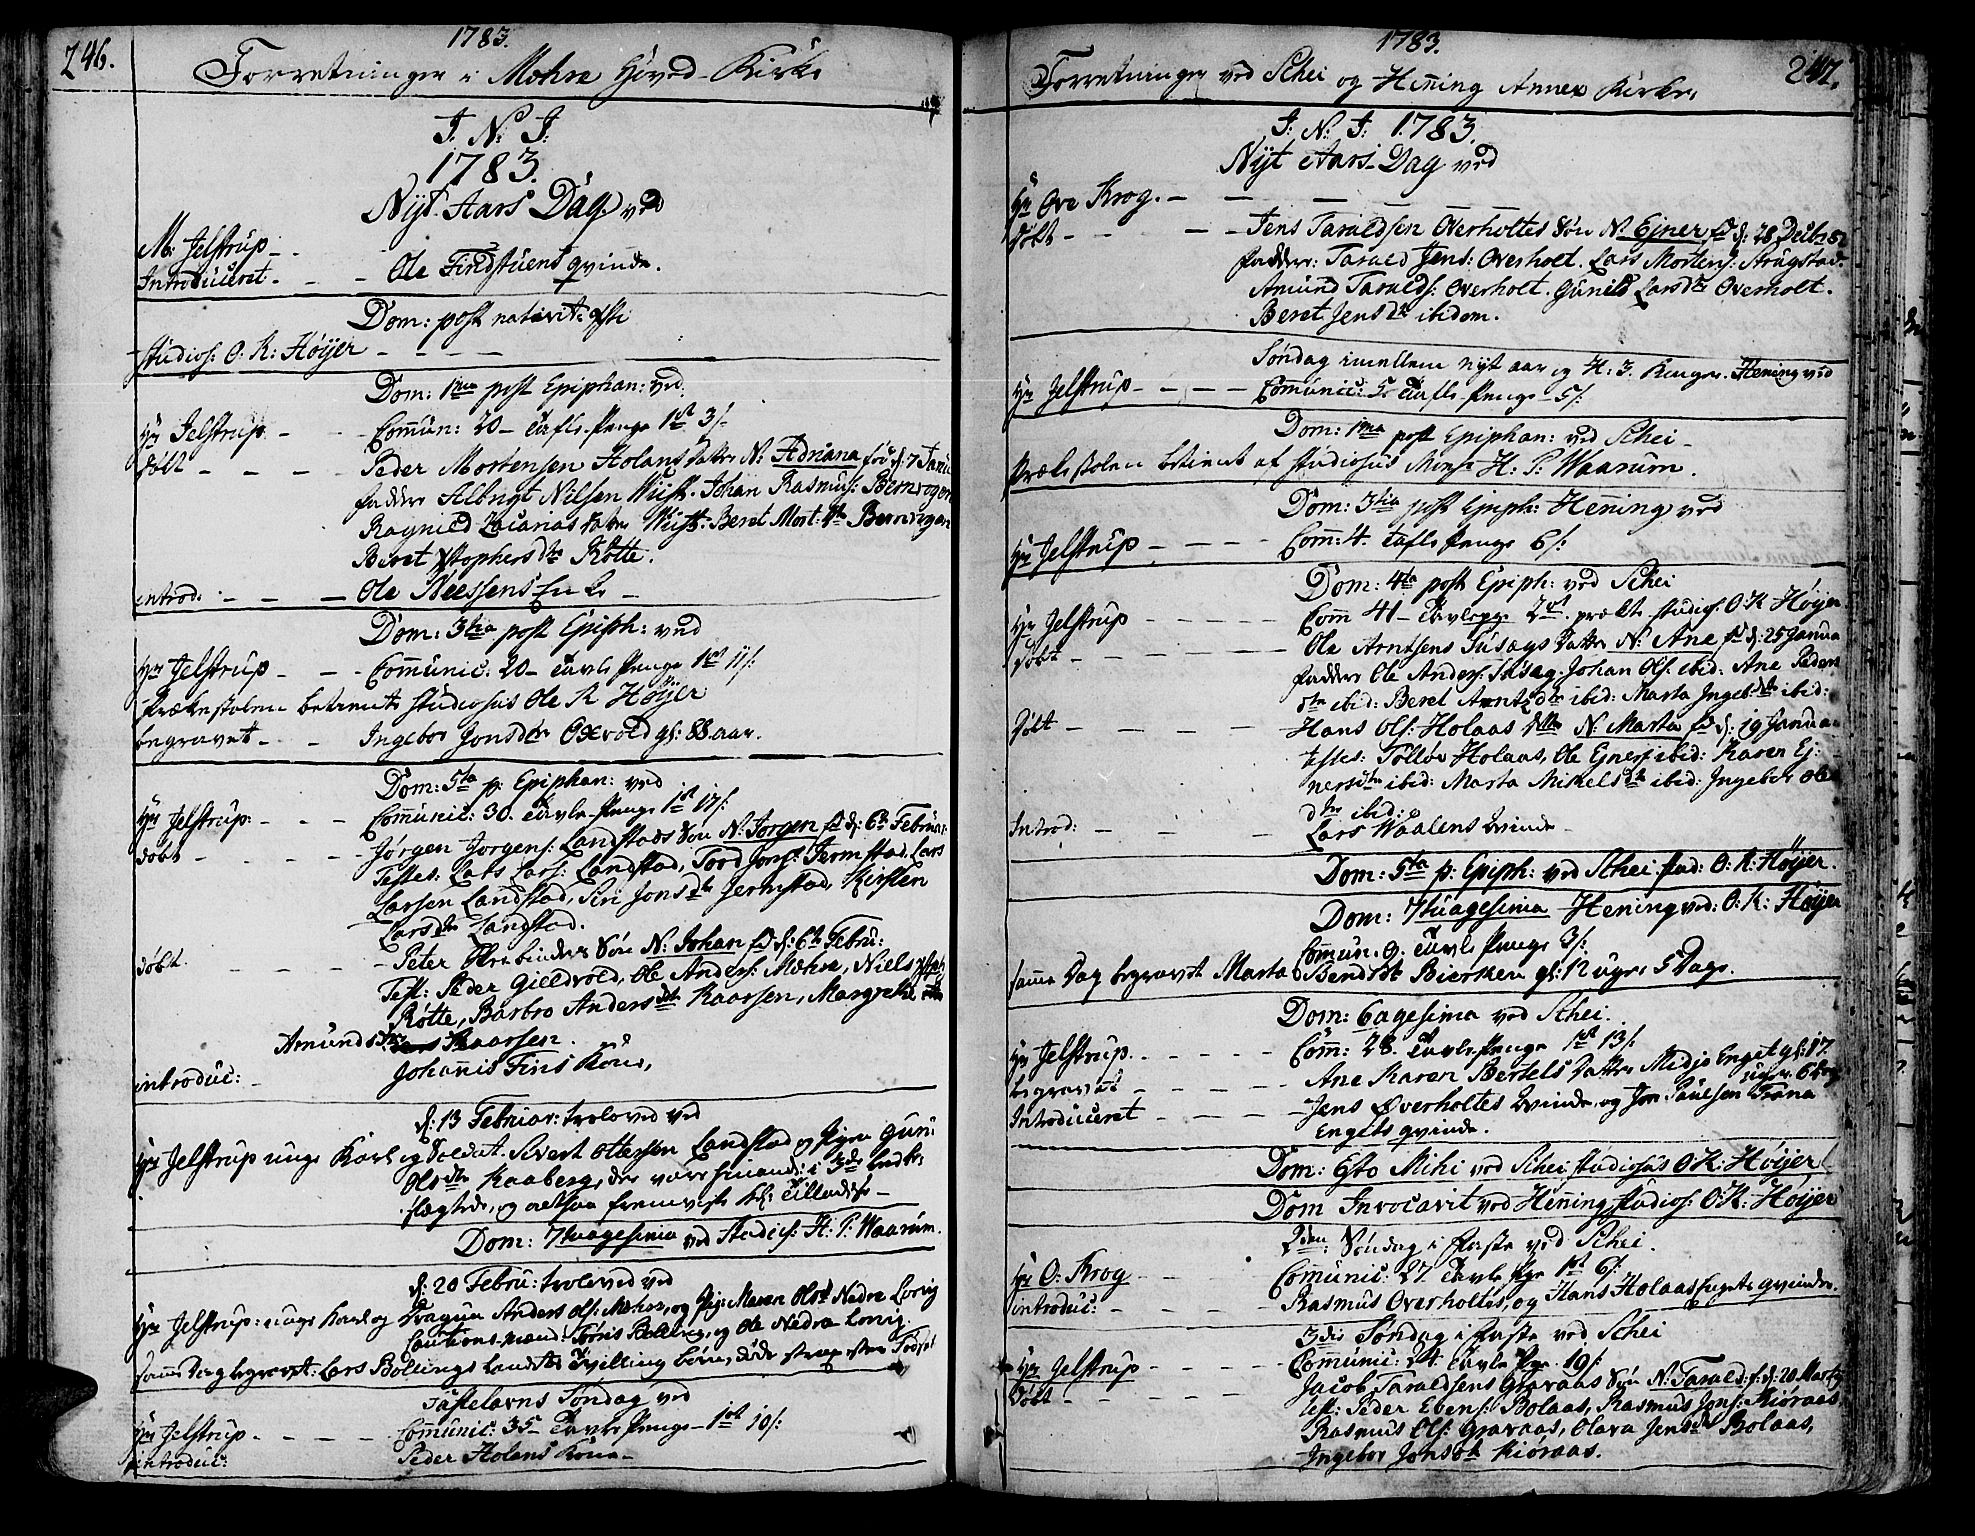 246.
1783.
Forretninger i Mæhre Hoved-Kirke
J. N. J.
1783.
Nyt Aars Dag ved
M: Jelstrup
Introduceret - - - Ole Findstuens qvinde.
Dom: post nativit:
Studios: O. K: Høyer - - - -
Dom: 1ma post Epiphan: ved
Hr Jelstrup - - Com̄un: 20 - Tafle Penge 1rt 3/:
døbt - - - - Peder Mortensen Holans datter N: Adriana fød d: 7 Janu
faddere Albrigt Nilsen Wüst. Johan Rasmus: Bernvogen
Ragnild Zacarias datter Wüst. Beret Mort: dtr Bernvogen
Beret Xstophers dtr Rotte.
introd: - - - Ole Neessens Enke -
Dom: 3tia post Epiph: ved
Hr Jelstrup - - - Com̄unic: 20 - Tavle Penge 1rt 11/:
Prækestolen betient Studiosus Ole K Høyer
begravet - - Ingebor Jonsdtr Oxvold gl: 88 aar.
Dom: 5ta p: Epiphan: ved
Hr Jelstrup: - - - Com̄unic: 30. Tavle Penge 1rt 17/:
døbt - - - - - Jørgen Jørgens: Landstads Søn N: Jorgen fd d: 6te Februar:
Testes. Lars Lars: Landstad, Tord Jons: Jermstad. Lars
Larsen Landstad, Siri Jonsdtr Jermstad, Kirsten
Larsdtr Landstad.
døbt - - - - - Peter binders Søn N: Johan fd d: 6te Febru:
Test: Peder Gieldvold, Ole Anders: Mæhre, Niels
Røtte, Barbro Andersdtr Kaarsen, Margrete
Amunds dtr Kaarsen.
introduc: - Johannis Fins Kone,
d: 13 Februar: troloved ved
Hr Jelstrup unge Karl og Soldat. Sivert Ottersen Landstad og Pigen Guru
Olsdtr Kaaberg, der vare i 3die Leds
slegtede, og altsaa fremviste Tilladelse -
Dom: 7tuagesima ved Studios: H: P. Waarum.
d: 20 Febru: troloved ved
Hr Jelstrup: unge Karl og Dragun Anders Ols: Mæhre, og Pig: Maren Olsd Nedre Lorvig
Cautions-mænd: Bolling, og Ole Nedre Lorvig.
sam̄e Dag begravet: Lars Bollings Tvilling børn, døde strax efter Fødsel
Fastelavns Søndag ved
Hr Jelstrup. - - - - Com̄unic: 35 - Tavle Penge - 1rt 10/:
introduc: Peder Holans Kone -
1783.
247.
Forretninger ved Schei og Hen̄ing Annex Kirker,
J: N: J: 1783.
Nyt Aars-Dag ved
Hr Ove Krog. - - - - - -
døbt - - - - - - Jens Taraldsen Overholtes Søn N: Ejner fd d: 28 Decbr 82
faddere: Tarald Jens: Overholt. Lars Mortens: Strugstad.
Amund Taralds: Overholt. Gunild Larsdtr Overholt.
Beret Jensdtr ibidem.
Søndag imellem nyt aar og H: 3. Konger. Hening ved
Hr Jelstrup - - - - Com̄unic: 5. Tafle Penge - 5/:
Dom: 1ma post Epiphan: ved Schei -
Prækestolen betient af Studiosus Monsr H: P: Waarum.
Dom: 3tia post Epiph: Hen̄ing ved
Hr Jelstrup - - - - Com̄: 4. Tafle Penge 6/:
Dom: 4ta post Epiph: ved Schei
Hr Jelstrup - - - - Com̄ 41 - Tavlepge 2rt. prækte Studios: O: K Høyer
døbt - - - - - - Ole Arntsens Susægs datter N: Ane fd d: 25 Janua
faddere Ole Anders: Susæg, Johan Ols: ibid: Ane Peders
dtr ibid: Beret Arntzdtr ibid: Marta Ingebdtr ibid:
døbt - - - - - Hans Ols: Holaas dttr N: Marta fd d: 19 Janua
testes: Tolløv Holaas, Ole Ejners: ibid: Karen Ej:
nersdtr ibid: Marta Mikelsdtr ibid: Ingebor Ole
dtr ibid:
Introd: - - - - Lars Waalens qvinde
Dom: 5ta p: Epiph: ved Schei stud: O: K: Høyer.
Dom: 7tuagesima Hening ved: O: K: Høyer
Com̄un: 9. Tavle Penge 3/:
sam̄e Dag begravet Marta Bendsdt Bierken gl: 12 uger 5 Dage.
Dom: 6agesima ved Schei.
Hr Jelstrup. - - - - - Com̄: 28. Tavle Penge 1rt 13/:
begravet - - - - - Ane Karen Bertels datter Midjo Enget gl: 17.
uger. 6 dag
Introduceret - - - - Jens Øverholtes qvinde, og Jon Paulsen Trana
Engets qvinde.
Dom: Esto Mihi ved Schei studiosus O: K: Høyer
Dom Invocavit ved Hening studios: O: K: Høyer
2den: Søndag i Faste ved Schei.
Hr O: Krog - - Com̄unic: 27. Tavle Pge 1rt 6/:
introduc: - - - - - Rasmus Overholtes, og Hans Holaas qvinder.
3die Søndag i Faste ved Schei
Hr Jelstrup - - - - - Com̄unic: 24. Tavle Pge. 19/:
døbt - - - - - Jacob Taraldsens Gravaas Søn N: Tarald. f: d: 20 Marty
test: Peder Ebens: Bolaas, Rasmus Jons: Kiøraas.
Rasmus Ols: Gravaas, Olava Jensdtr Bolaas,
Ingebor Jonsdtr Kiøraas.